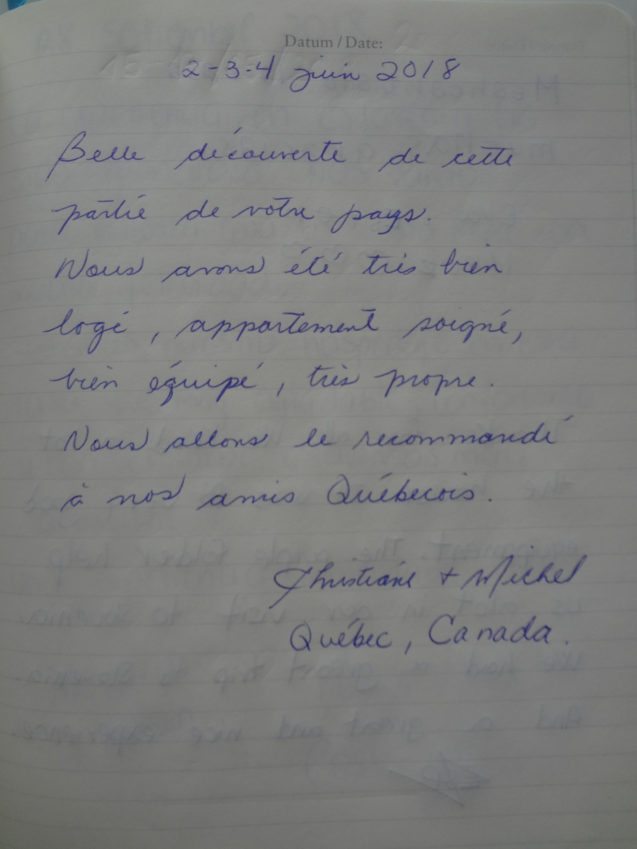 Datum / Date:
2-3-4 juin 2018
Belle découverte de cette
partie de votre pays.
Nous avons été très bien
logé, appartement soigné,
bien équipé, très propre.
Nous allons le recommandé
à nos amis Québecois.
Christiane + Michel
Québec, Canada.